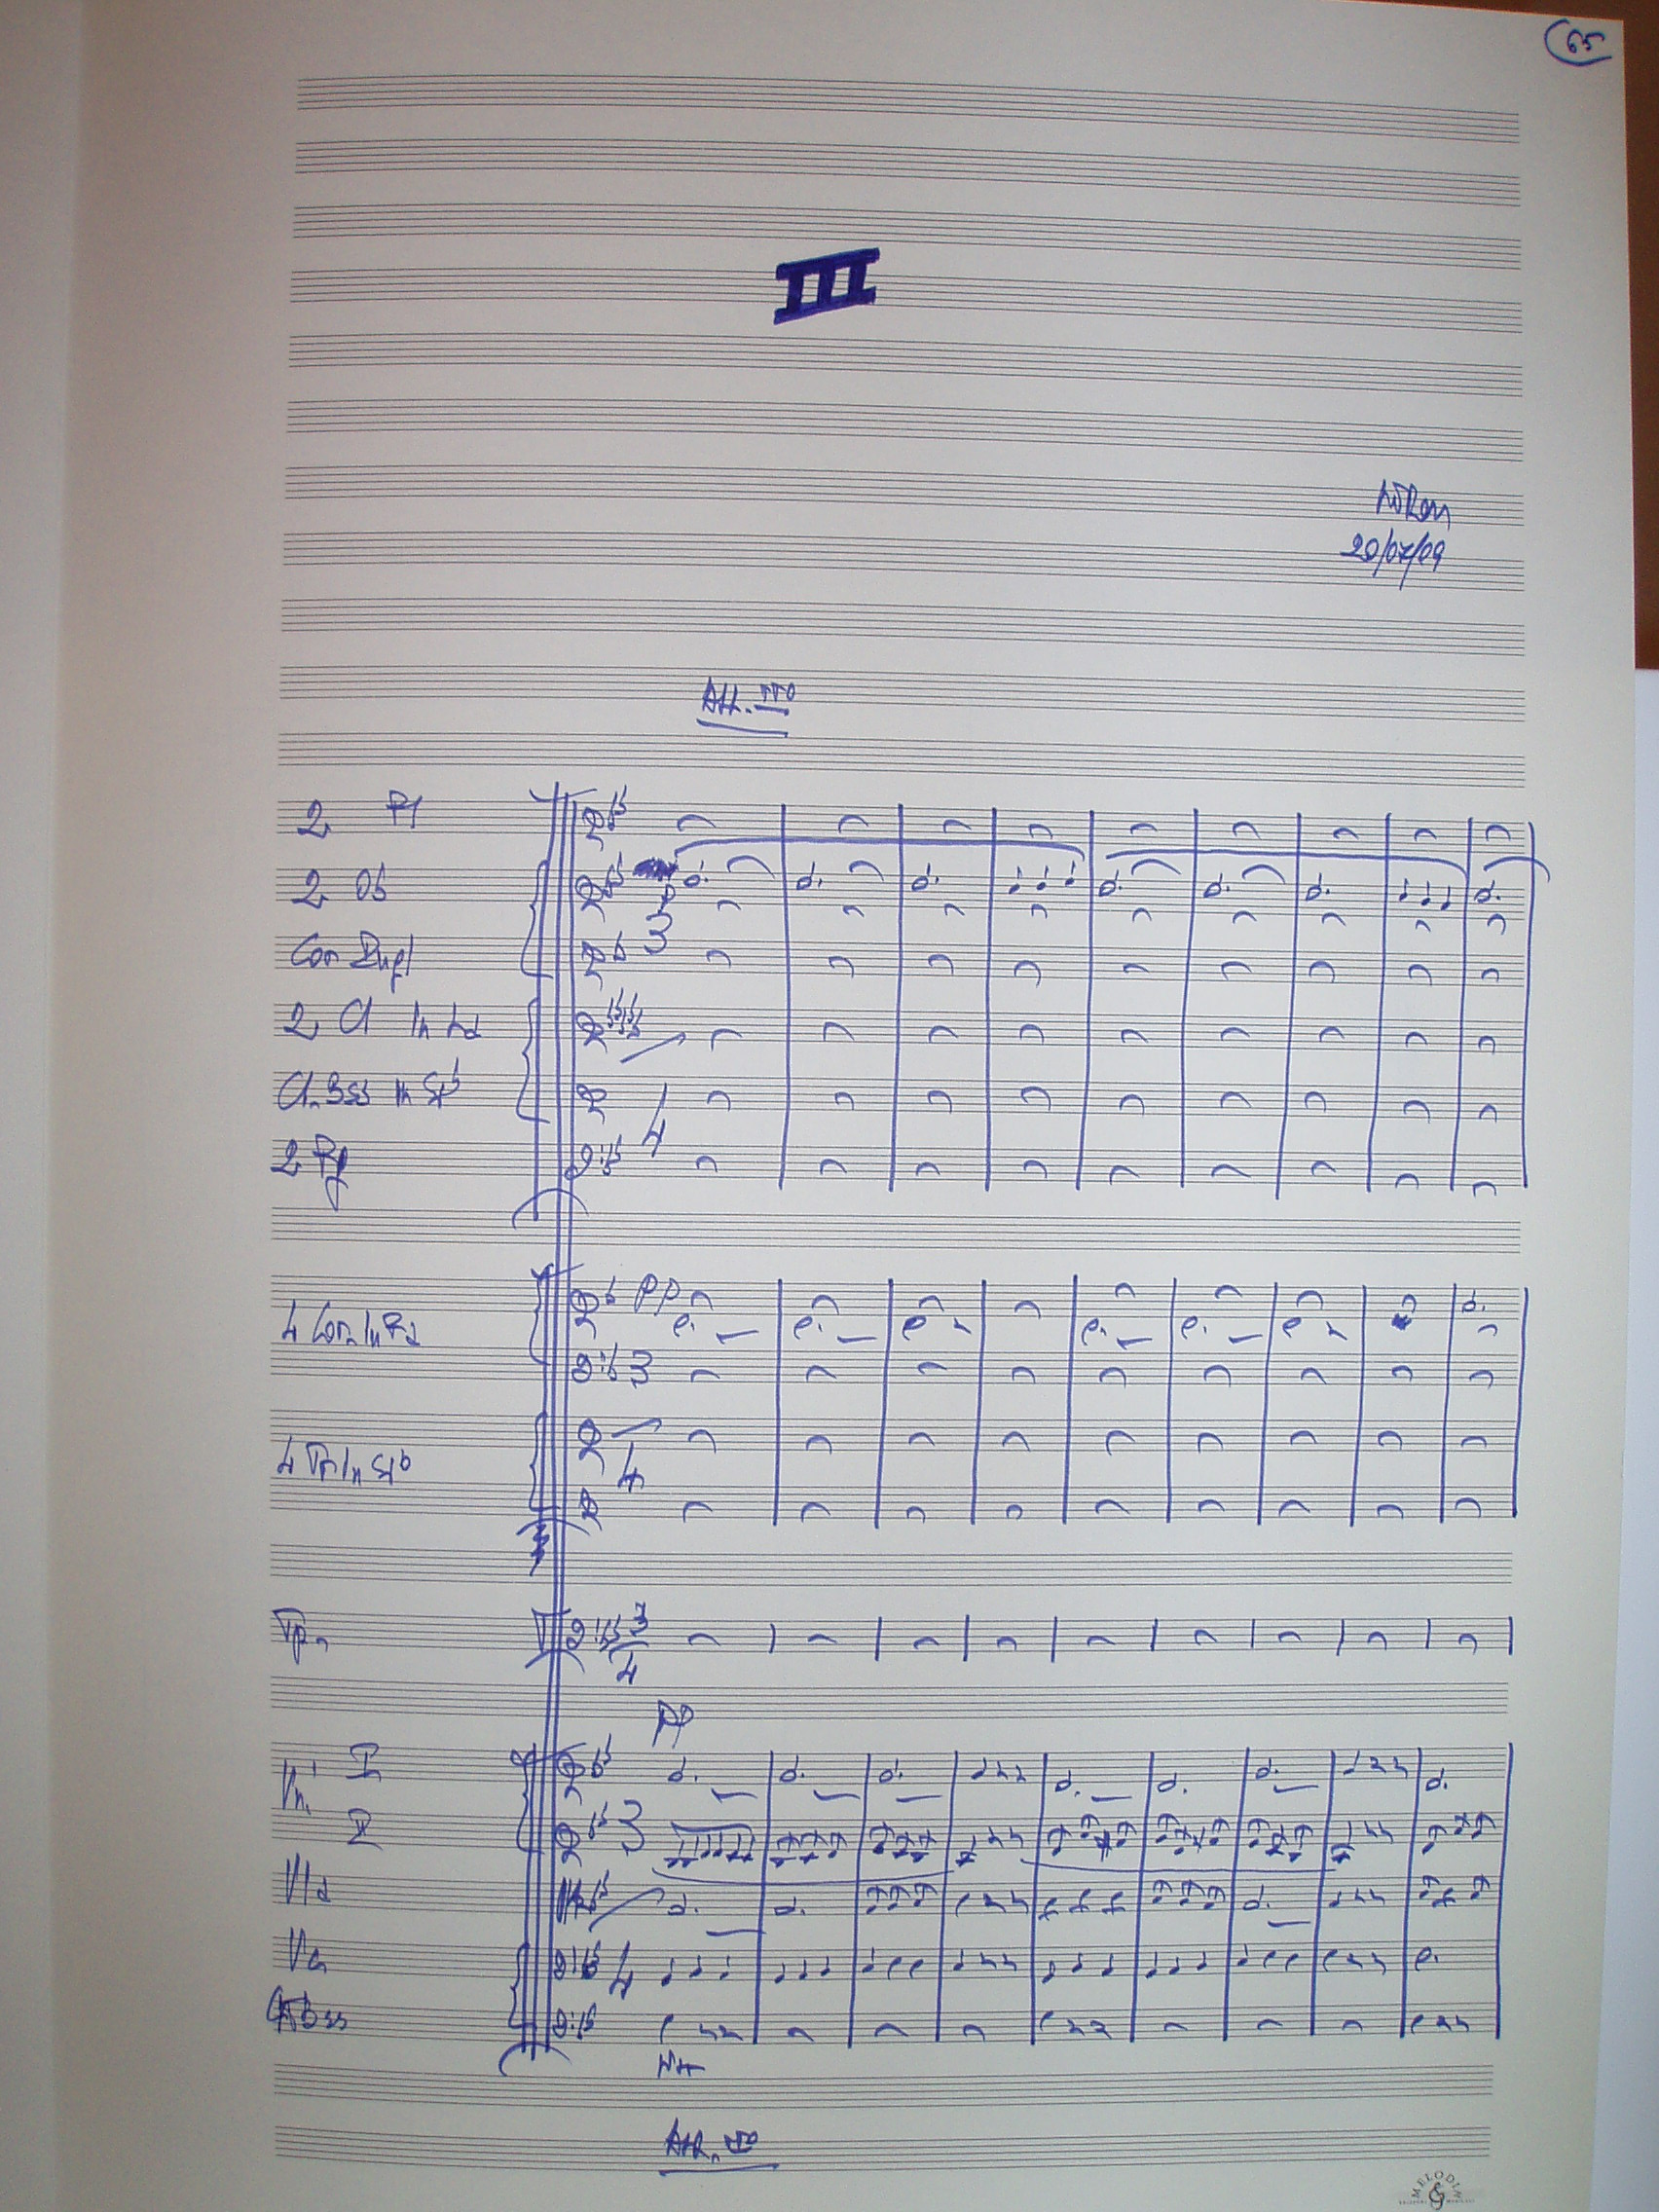 65
III
20/07/09
All.tto
2 Fl
2 Ob
Cor Ingl
2 Cl in La
Cl. Bss in Sib
2 Fg
3
4
pp
4 Cor in Fa
3
4 Tr in Sib
4
Tp.
3
4
pp
Vni I
II
3
Vla
Vc
4
CBss
All.tto
MELODI